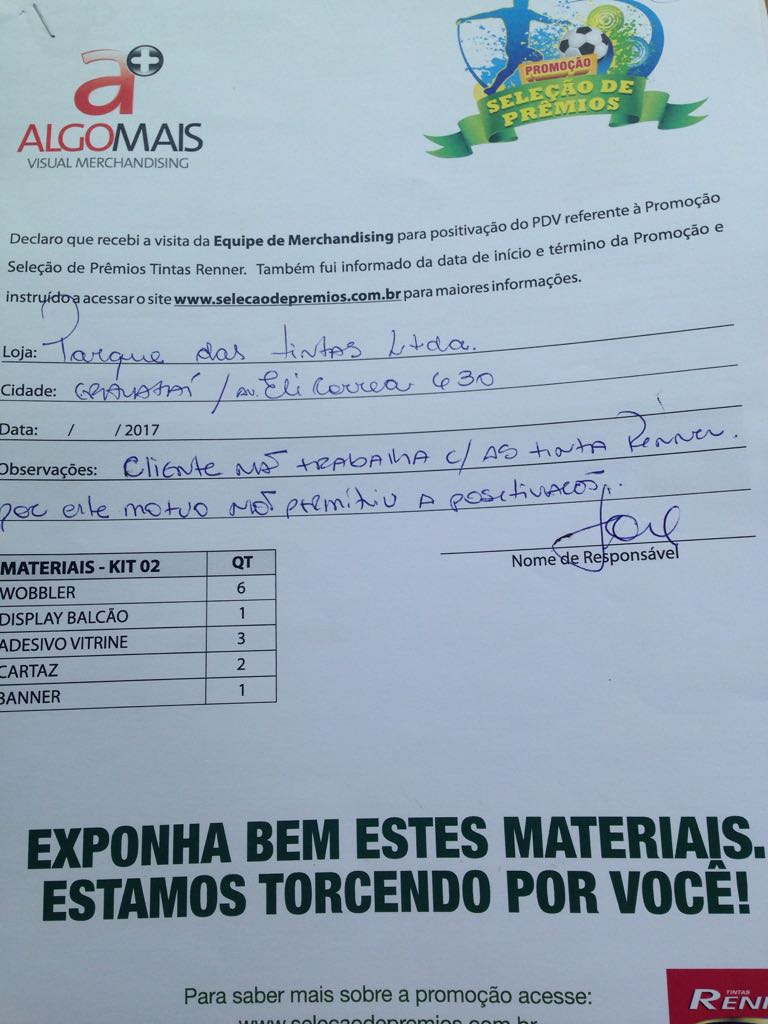 a+
ALGOMAIS
VISUAL MERCHANDISING
PROMOÇÃO
SELEÇÃO DE
PRÊMIOS
Declaro que recebi a visita da Equipe de Merchandising para positivação do PDV referente à Promoção
Seleção de Prêmios Tintas Renner. Também fui informado da data de início e término da Promoção e
instruído a acessar o site www.selecaodepremios.com.br para maiores informações.
Loja: Parque das tintas Ltda.
Cidade: GRAVATAÍ / AV. Eli Correa 630
Data: / / 2017
Observações: Cliente NÃO TRABALHA C/ AS tinta Renner.
por este motivo NÃO permitiu A positivação.
Nome de Responsável
MATERIAIS - KIT 02 QT
WOBBLER 6
DISPLAY BALCÃO 1
ADESIVO VITRINE 3
CARTAZ 2
BANNER 1
EXPONHA BEM ESTES MATERIAIS.
ESTAMOS TORCENDO POR VOCÊ!
Para saber mais sobre a promoção acesse:
www.selecaodepremios.com.br
TINTAS
RENN